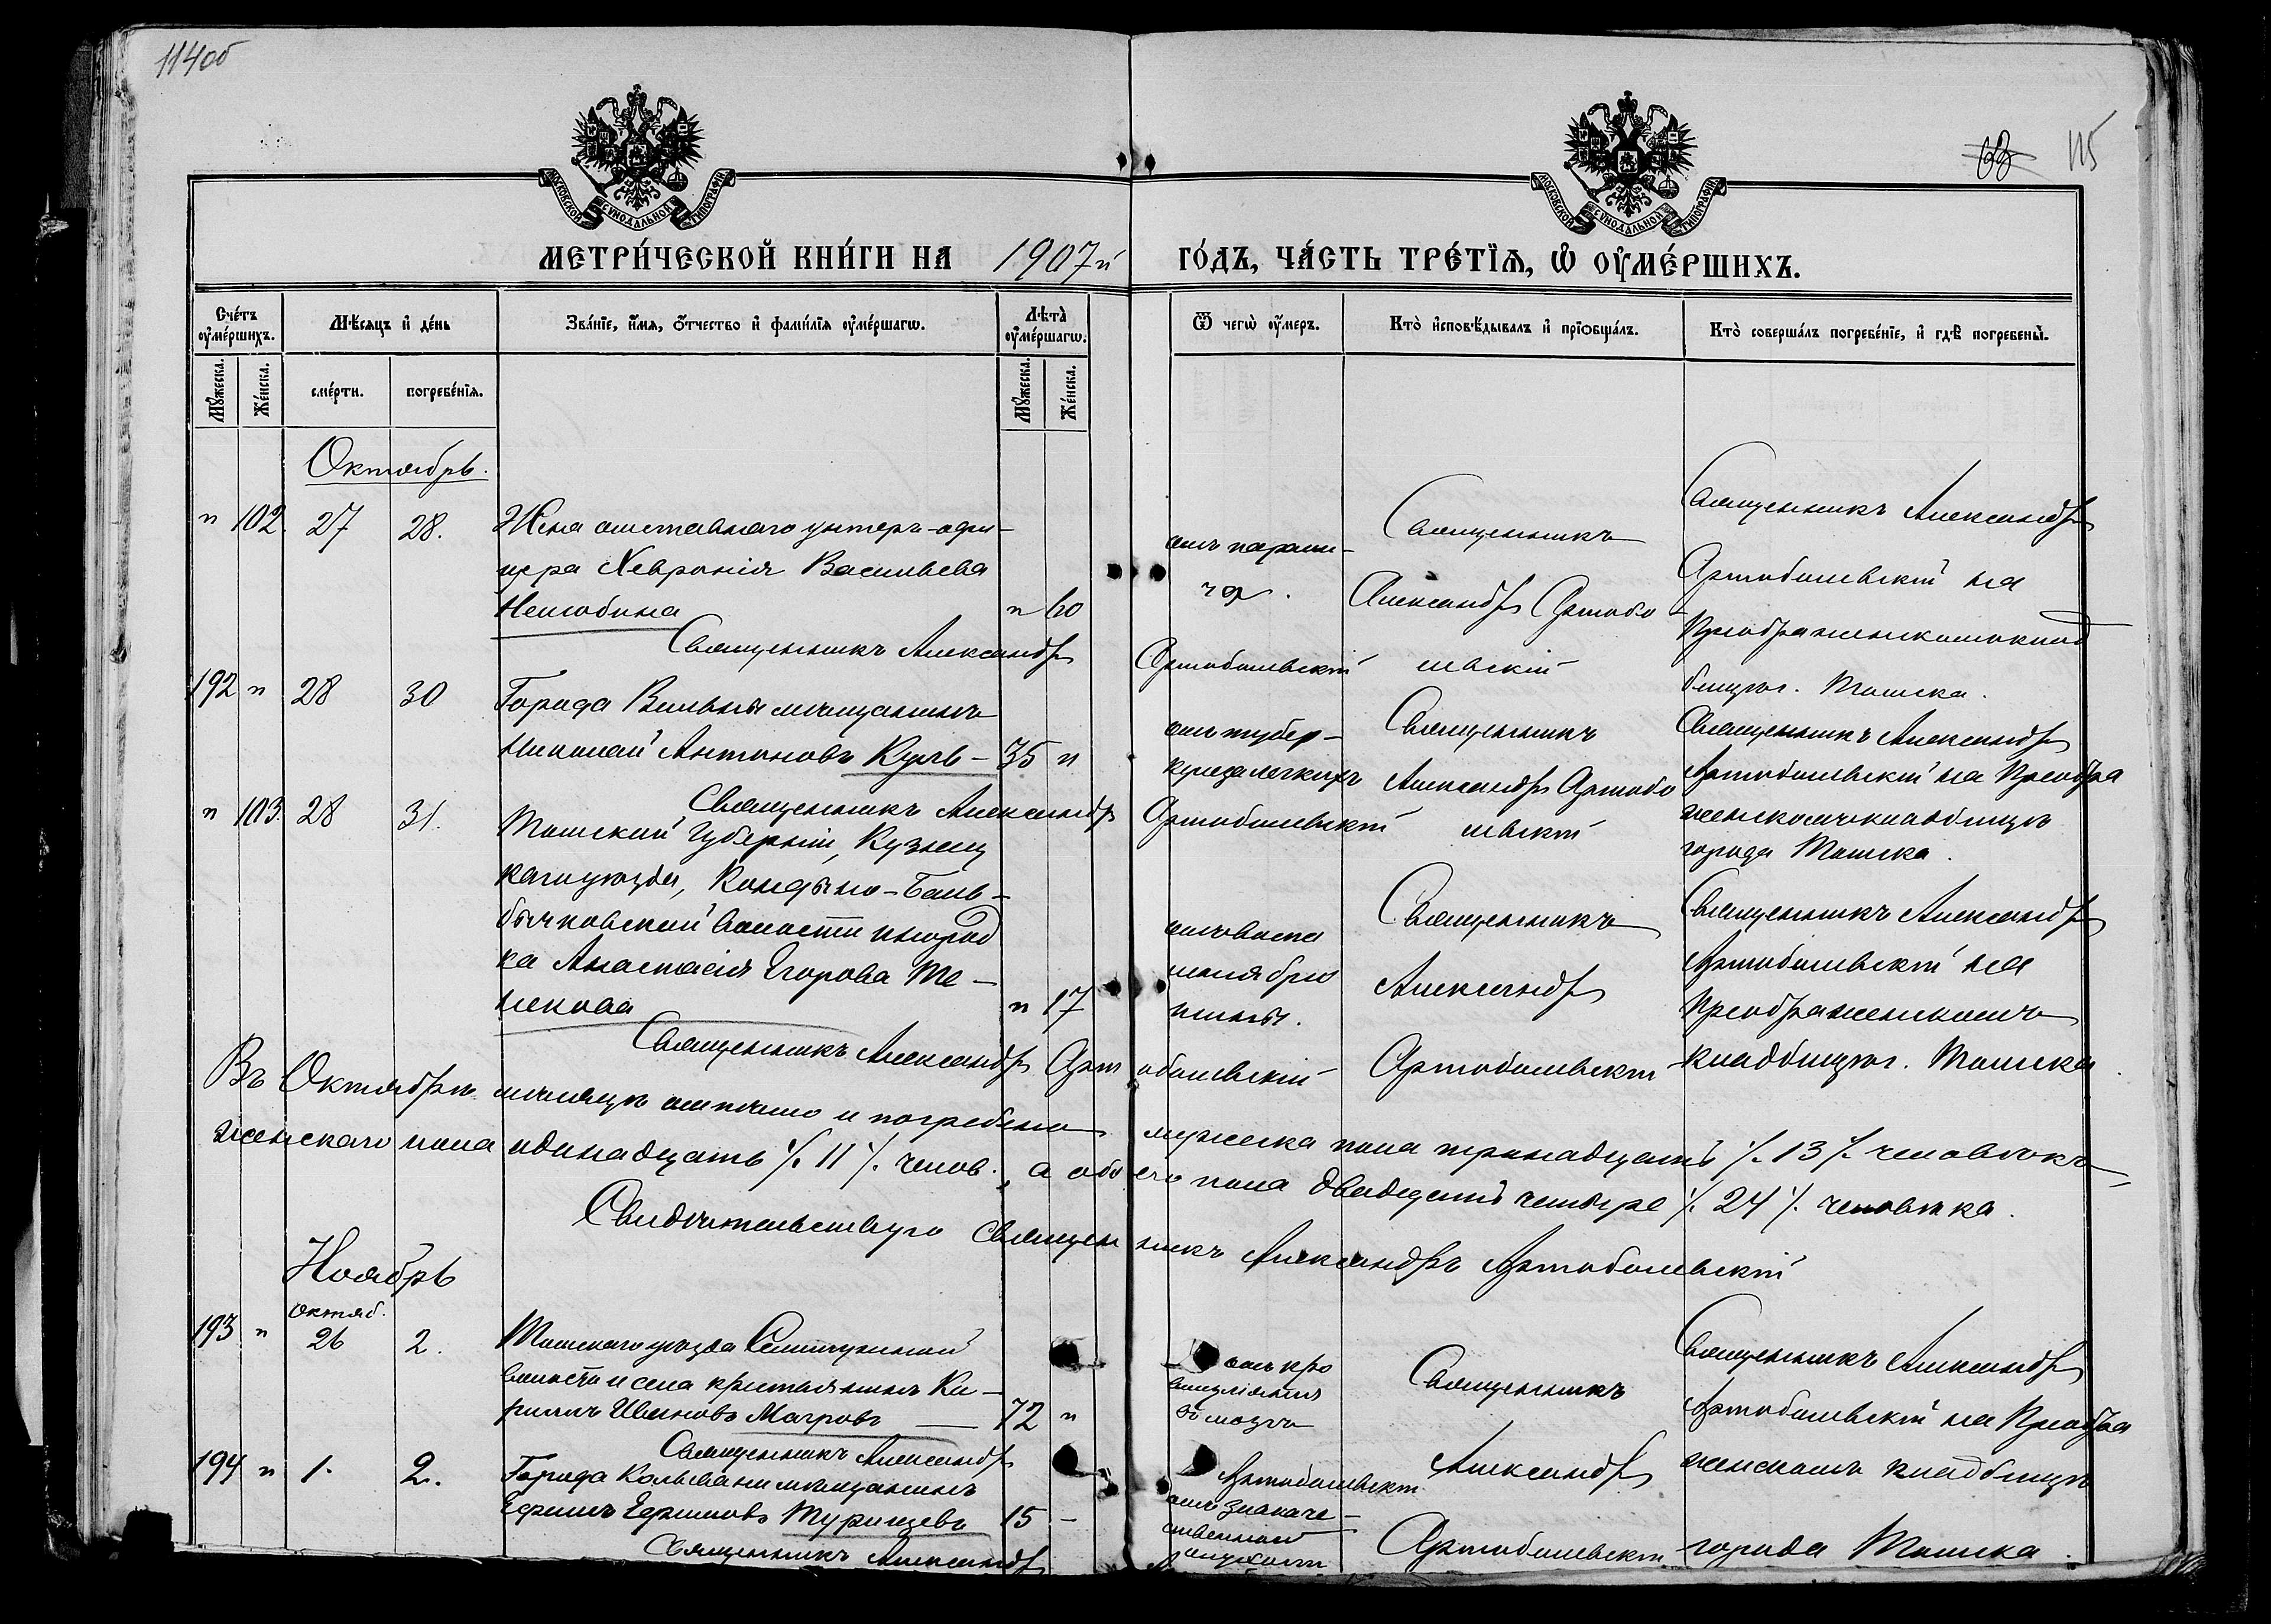 114об
115
МОСКОВСКОЙ СѴНОДАЛЬНОЙ ТИПОГРАФІИ
МОСКОВСКОЙ СѴНОДАЛЬНОЙ ТИПОГРАФІИ
МЕТРИ́ЧЕСКОЙ КНИ́ГИ НА 1907й ГО́ДЪ, ЧА́СТЬ ТРЕ́ТЇѦ, Ѡ ОУ҆МЕ́РШИХЪ.
Сче́тъ оу҆ме́ршихъ.
Мѣ́сяцъ и҆ де́нь
Зва́нїе, и҆́мя, о҆́тчество и҆ фами́лїя оу҆ме́ршагѡ.
Лѣта̀ оу҆ме́ршагѡ.
Ѿ чегѡ̀ оу҆́меръ.
Кто̀ и҆сповѣ́дывалъ и҆ прїѡбща́лъ.
Кто̀ соверша́лъ погребе́нїе, и҆ гдѣ̀ погребены̀.
Мꙋ́жеска.
Же́нска.
сме́рти.
погребе́нїя.
Мꙋ́жеска.
Же́нска.
Октябрь.
" 102. 27 28.
Жена отставного унтеръ-офи-
цера Хевронія Васильева
Неизобина " 60
отъ парали-
ча.
Священникъ
Александръ Артобо
левскій
Священникъ Александръ
Артоболевскій на
Преображенскомъ клад
бищѣ г. Томска.
Священникъ Александръ Артоболевскій
192 " 28 30
Города Вильны мѣщанинъ
Николай Антоновъ Куль - 35 "
отъ тубер-
кулеза легкихъ
Священникъ
Александръ Артобо
левскій
Священникъ Александръ
Артоболевскій на Преобра
женскомъ кладбищѣ
города Томска.
Священникъ Александръ Артоболевскій
" 103. 28 31.
Томской Губерніи, Кузнец
каго уѣзда,
волости инород
ка Анастасія Егорова Те-
некова " 17
отъ воспа
ленія брю
шины.
Священникъ
Александръ
Артоболевскій
Священникъ Александръ
Артоболевскій на
Преображенскомъ
кладбищѣ г. Томска.
Священникъ Александръ Артоболевскій
Въ Октябрѣ мѣсяцѣ отпѣто и погребено мужеска пола тринадцать /. 13 /. человѣкъ,
женскаго пола одинадцать /. 11 /. челов., а обоего пола двадцать четыре /. 24 /. человѣка.
Свидѣтельствую Священникъ Александръ Артоболевскій
Ноябрь
193 " Октяб. 26 2.
Томскаго уѣзда Семилужной
волости и села крестьянинъ Ки-
риллъ Ивановъ Магровъ — 72 "
отъ кро
воизліянія
въ мозгъ
Священникъ
Александръ
Артоболевскій
Священникъ Александръ
Артоболевскій на Преобра
женскомъ кладбищѣ
города Томска.
Священникъ Александръ Артоболевскій
194 " 1. 2.
Города Колывани мѣщанинъ
Ефимъ Ефимовъ Туринцевъ 15 -
отъ злокаче-
ственной
Священникъ Александръ